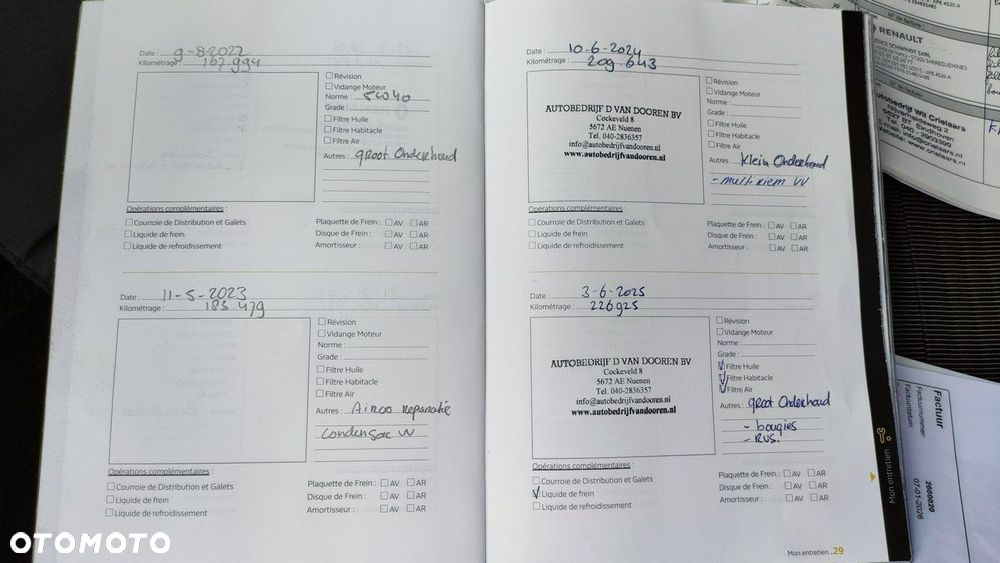 Date : 9-8-2022
Kilométrage : 167.994
Révision
Vidange Moteur
Norme : 5W040
Grade :
Filtre Huile
Filtre Habitacle
Filtre Air
Autres : groot Onderhoud
Opérations complémentaires :
Courroie de Distribution et Galets
Liquide de frein
Liquide de refroidissement
Plaquette de Frein : AV AR
Disque de Frein : AV AR
Amortisseur : AV AR
Date : 11-5-2023
Kilométrage : 183.479
Révision
Vidange Moteur
Norme :
Grade :
Filtre Huile
Filtre Habitacle
Filtre Air
Autres : Airco reparatie
Condensor VV
Opérations complémentaires :
Courroie de Distribution et Galets
Liquide de frein
Liquide de refroidissement
Plaquette de Frein : AV AR
Disque de Frein : AV AR
Amortisseur : AV AR
Date : 10-6-2024
Kilométrage : 209.643
AUTOBEDRIJF D VAN DOOREN BV
Cockeveld 8
5672 AE Nuenen
Tel. 040-2836357
info@autobedrijfvandooren.nl
www.autobedrijfvandooren.nl
Révision
Vidange Moteur
Norme :
Grade :
Filtre Huile
Filtre Habitacle
Filtre Air
Autres : Klein Onderhoud
- multiriem VV
Opérations complémentaires
Courroie de Distribution et Galets
Liquide de frein
Liquide de refroidissement
Plaquette de Frein : AV AR
Disque de Frein : AV AR
Amortisseur : AV AR
Date : 3-6-2025
Kilométrage : 226925
AUTOBEDRIJF D VAN DOOREN BV
Cockeveld 8
5672 AE Nuenen
Tel. 040-2836357
info@autobedrijfvandooren.nl
www.autobedrijfvandooren.nl
Révision
Vidange Moteur
Norme :
Grade :
Filtre Huile
Filtre Habitacle
Filtre Air
Autres : groot Onderhoud
- bougies
- RVS.
Opérations complémentaires :
Courroie de Distribution et Galets
Liquide de frein
Liquide de refroidissement
Plaquette de Frein : AV AR
Disque de Frein : AV AR
Amortisseur : AV AR
Mon entretien .29
Mon entretien
RENAULT
SCHWINDT SARL
SARREGUEMINES
N° de facture
Autobedrijf Wil Crielaars
Nijverheidsweg 2
Eindhoven
Tel. 040 - 2903399
www.crielaars.nl
info@crielaars.nl
Factuur
Factuurnummer:
Factuurdatum:
2600020
07-01-2026
OTOMOTO